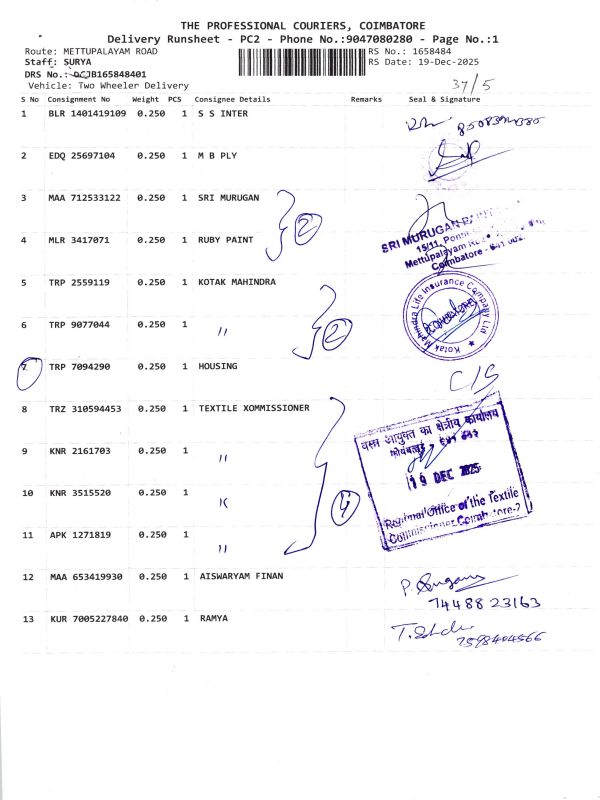 THE PROFESSIONAL COURIERS, COIMBATORE
Delivery Runsheet - PC2 - Phone No.:9047080280 - Page No.:1
Route: METTUPALAYAM ROAD RS No.: 1658484
Staff: SURYA RS Date: 19-Dec-2025
DRS No.: DCJB165848401
Vehicle: Two Wheeler Delivery 37/5
S No Consignment No Weight PCS Consignee Details Remarks Seal & Signature
1 BLR 1401419109 0.250 1 S S INTER
2 EDQ 25697104 0.250 1 M B PLY
3 MAA 712533122 0.250 1 SRI MURUGAN
2
SRI MURUGAN
4 MLR 3417071 0.250 1 RUBY PAINT
15/11,
Mettupalayam
Coimbatore - 641 002.
5 TRP 2559119 0.250 1 KOTAK MAHINDRA
Kotak Mahindra Life Insurance Company Ltd
COIMBATORE
6 TRP 9077044 0.250 1 "
2
7 TRP 7094290 0.250 1 HOUSING
C/S
8 TRZ 310594453 0.250 1 TEXTILE XOMMISSIONER
वस्त्र आयुक्त का क्षेत्रीय कार्यालय
9 KNR 2161703 0.250 1 "
19 DEC 2025
10 KNR 3515520 0.250 1 "
4
Regional Office of the Textile
Commissioner Coimbatore-2
11 APK 1271819 0.250 1 "
12 MAA 653419930 0.250 1 AISWARYAM FINAN
74488 23163
13 KUR 7005227840 0.250 1 RAMYA
7598404566